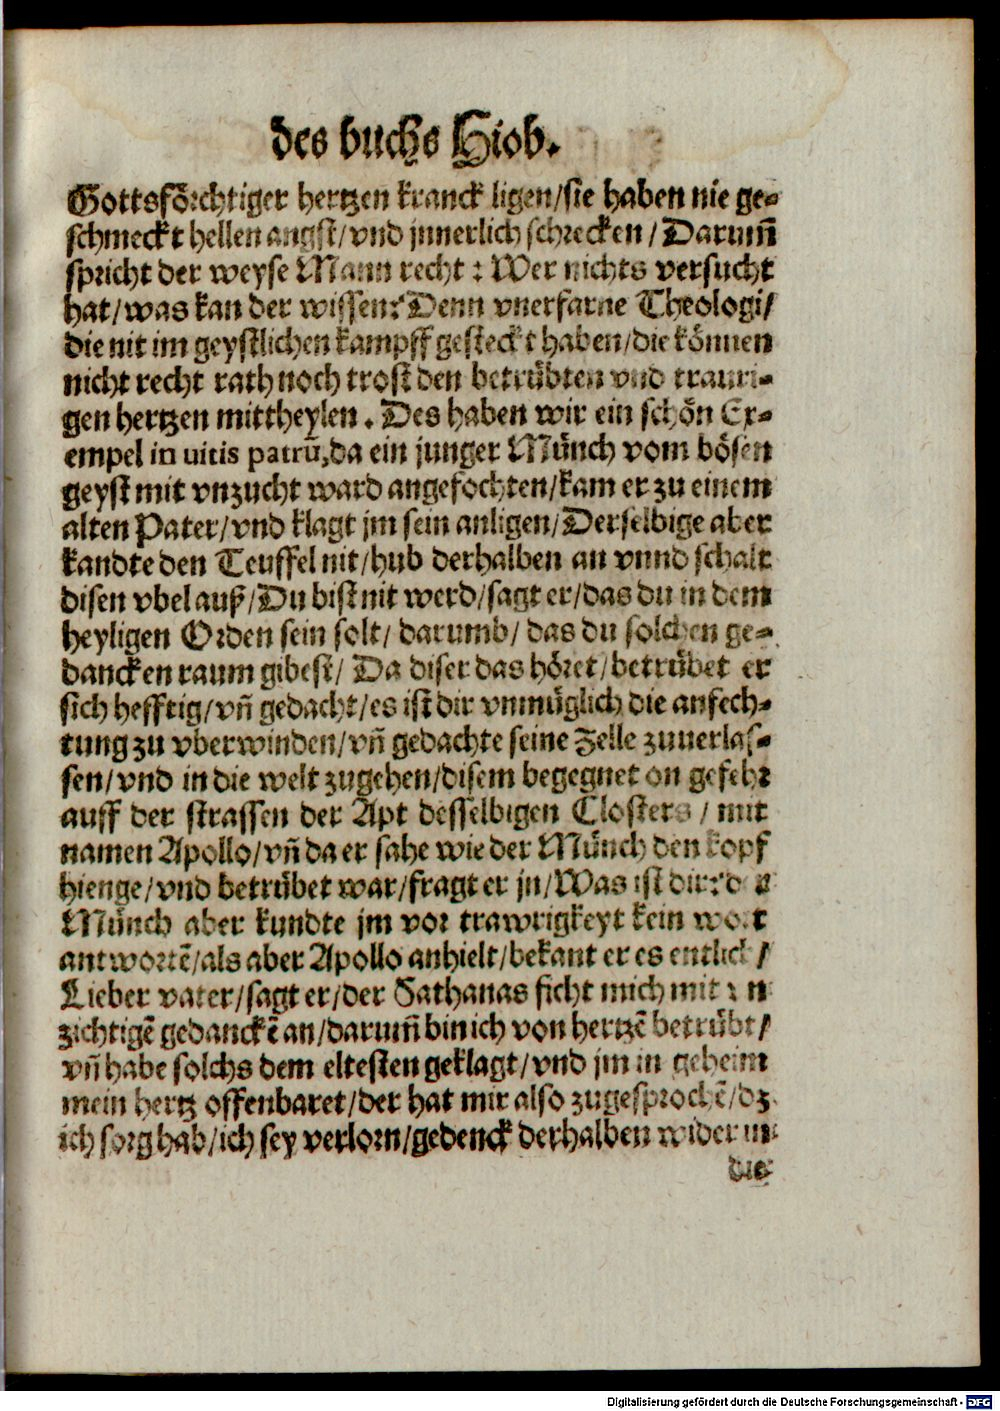 des buchs Hiob.
Gottsförchtiger hertzen kranck ligen/sie haben nie ge-
schmeckt hellen angst/vnd jnnerlich schrecken/Darum̃
spricht der weyse Mann recht: Wer nichts versucht
hat/was kan der wissen? Denn vnerfarne Theologi/
die nit im geystlichen kampff gesteckt haben/die können
nicht recht rath noch trost den betrübten vnd trauri-
gen hertzen mittheylen. Des haben wir ein schön Ex-
empel in uitis patrũ, da ein junger Münch vom bösen
geyst mit vnzucht ward angefochten/kam er zu einem
alten Pater/vnd klagt jm sein anligen/Derselbige aber
kandte den Teuffel nit/hub derhalben an vnnd schalt
disen vbel auß/Du bist nit werd/sagt er/das du in dem
heyligen Orden sein solt/darumb/das du solchen ge-
dancken raum gibest/Da diser das höret/betrübet er
sich hefftig/vñ gedacht/es ist dir vnmüglich die anfech-
tung zu vberwinden/vñ gedachte seine Zelle zuuerlas-
sen/vnd in die welt zugehen/disem begegnet on gefehr
auff der strassen der Apt desselbigen Closters/mit
namen Apollo/vñ da er sahe wie der Münch den kopf
hienge/vnd betrübet war/fragt er jn/Was ist dir? der
Münch aber kundte jm vor trawrigkeyt kein wort
antwortẽ/als aber Apollo anhielt/bekant er es entlich/
Lieber vater/sagt er/der Sathanas ficht mich mit vn
zichtigẽ gedanckẽ an/darum̃ bin ich von hertzẽ betrübt/
vñ habe solchs dem eltesten geklagt/vnd jm in geheim
mein hertz offenbaret/der hat mir also zugesprochẽ/dz
ich sorg hab/ich sey verlorn/gedenck derhalben wider in
die
Digitalisierung gefördert durch die Deutsche Forschungsgemeinschaft - DFG